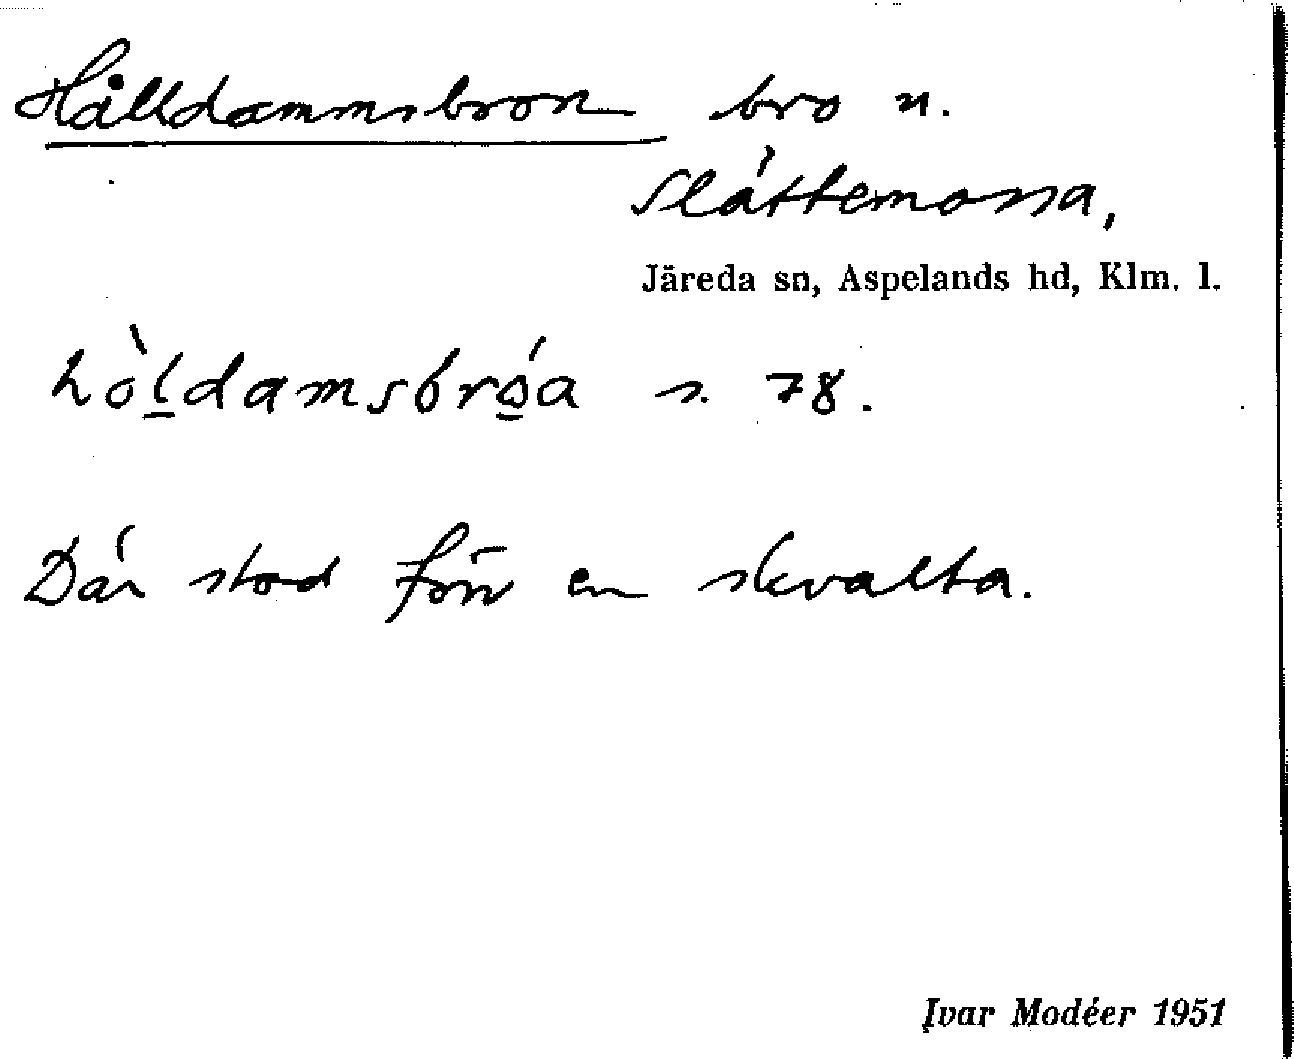 Hålldammsbron bro n.
Slättemossa,
Järeda sn, Aspelands hd, Klm. l.
hòl̲damsbró̲a s. 78.
Där stod förr en skvalta.
Ivar Modéer 1951